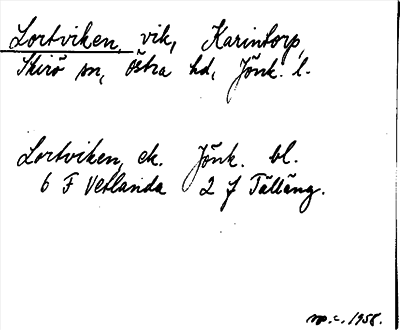 Lortviken, vik, Karintorp,
Skirö sn, Östra hd, Jönk. l.
Lortviken, ek. Jönk. bl.
6 F Vetlanda 2 f Tälläng.
1958.